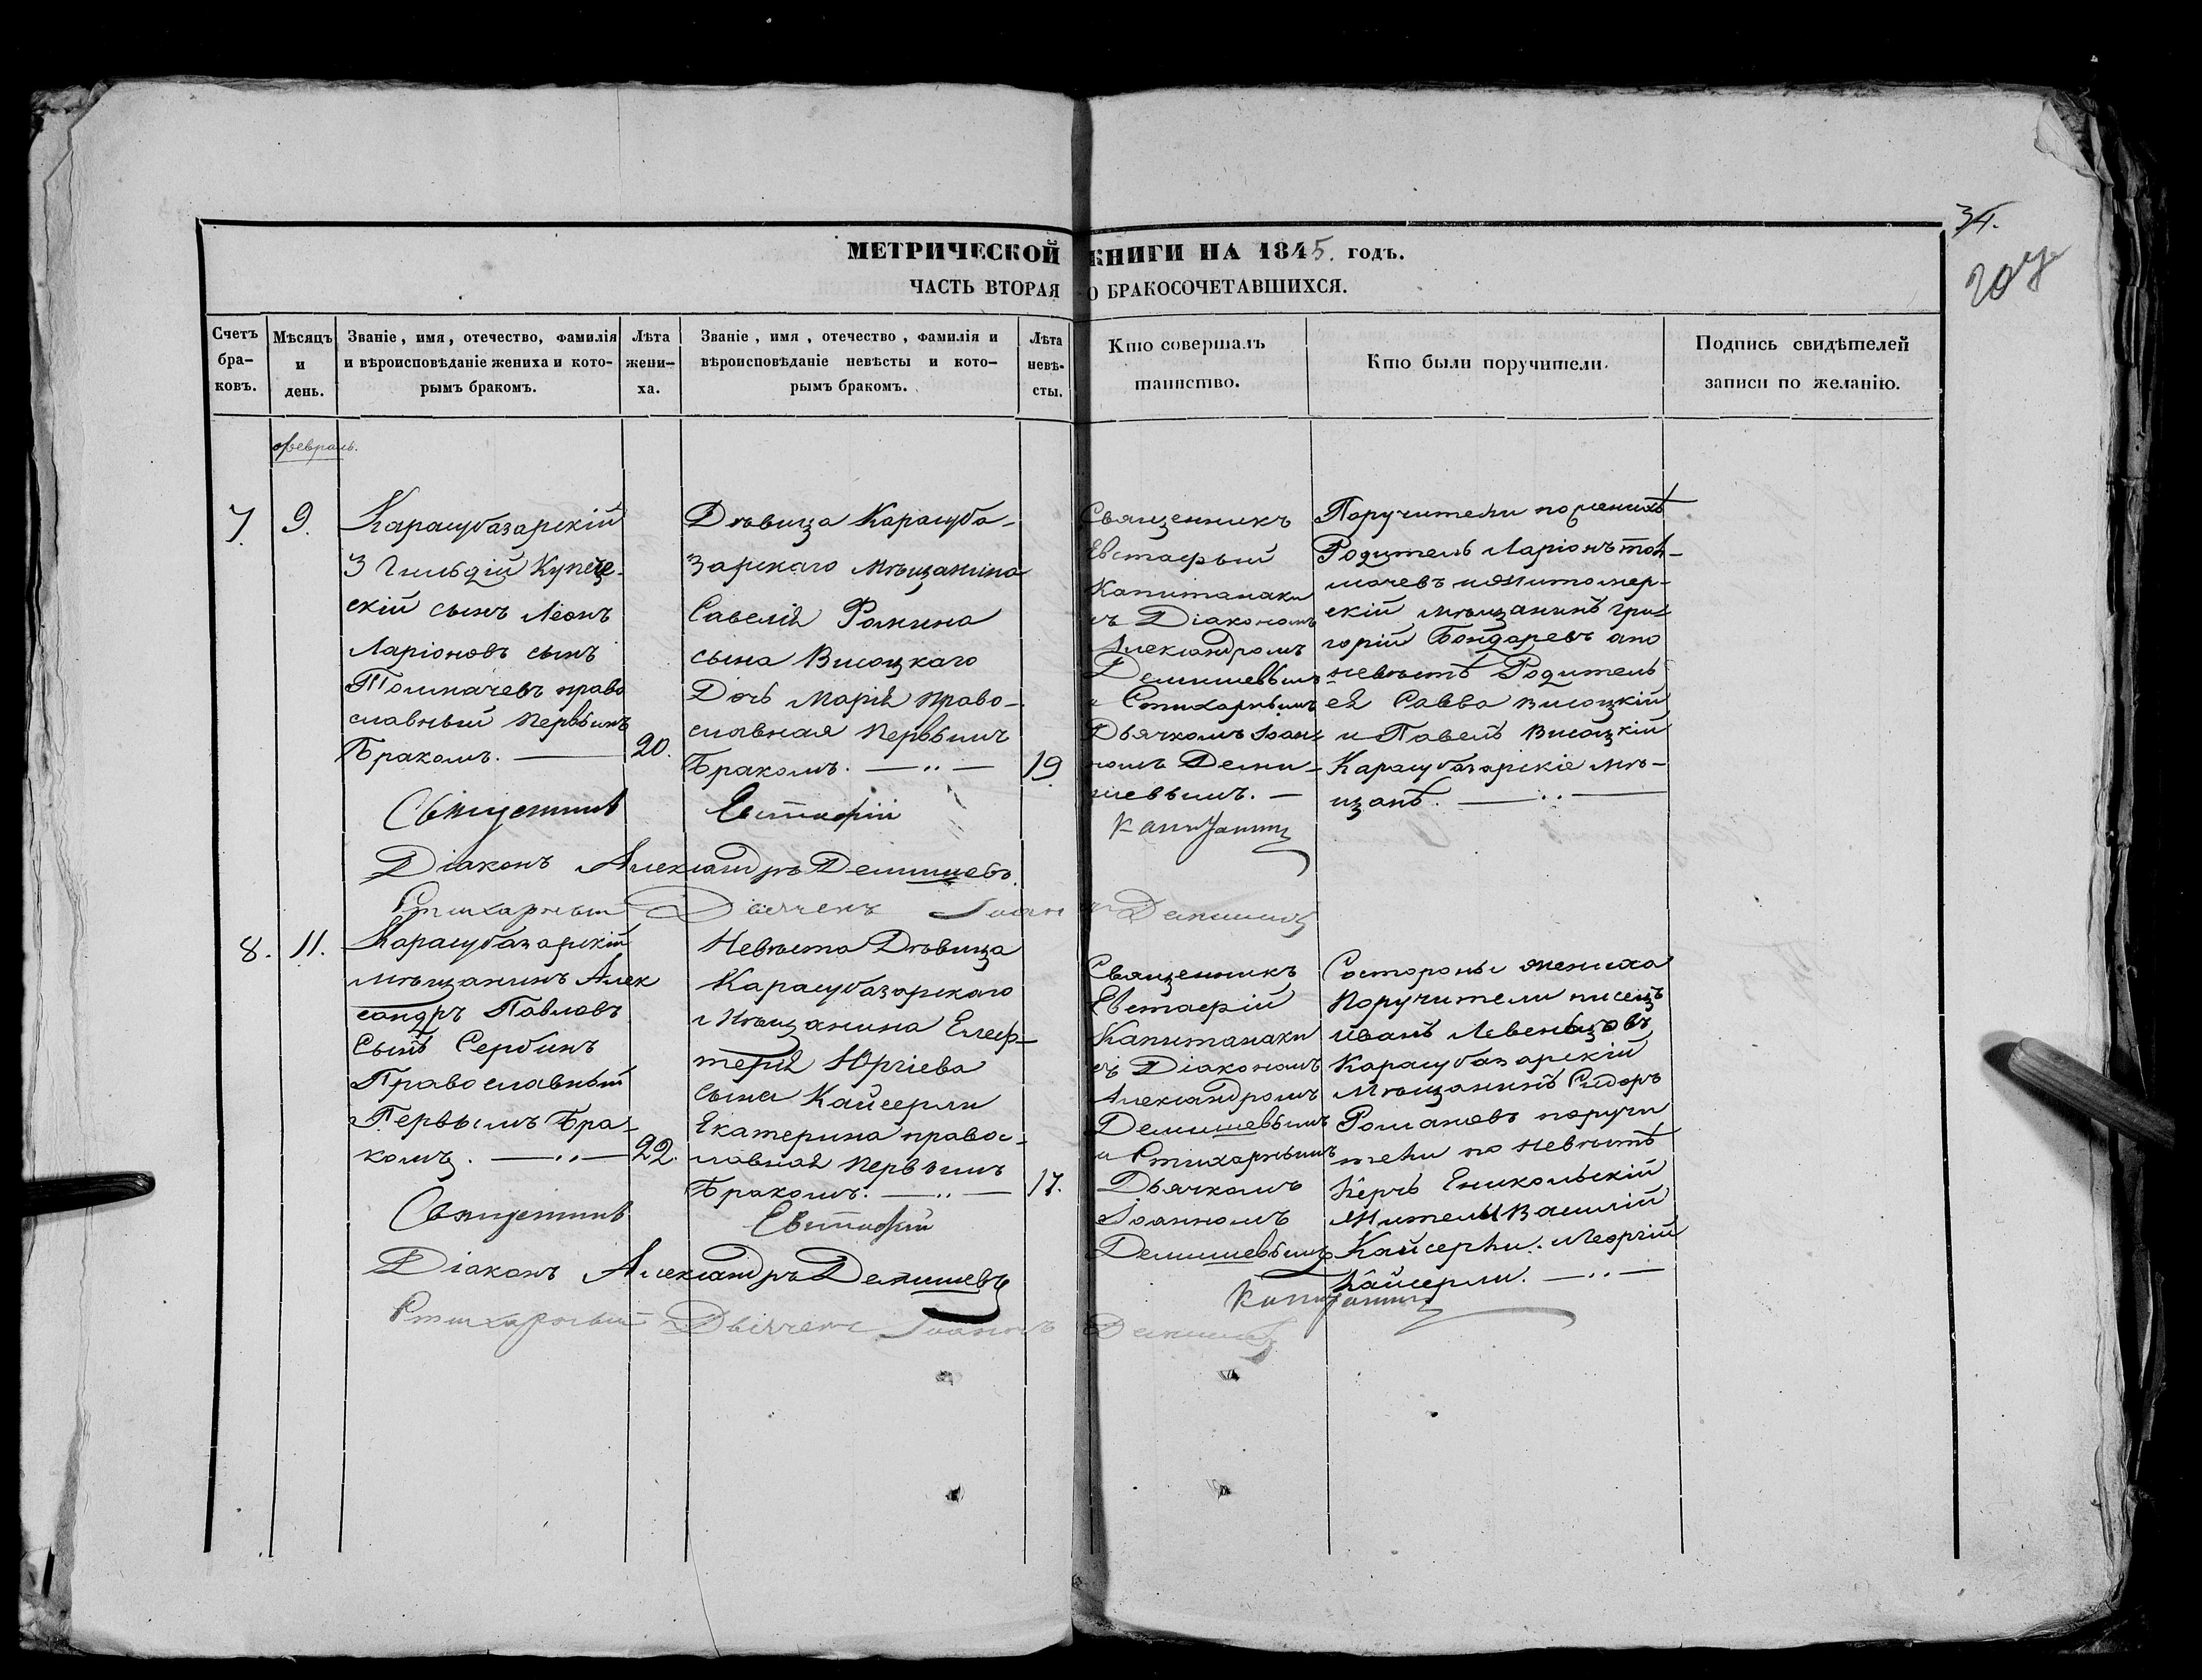 34.
МЕТРИЧЕСКОЙ КНИГИ НА 1845. годъ.
ЧАСТЬ ВТОРАЯ О БРАКОСОЧЕТАВШИХСЯ.
Счетъ бра-
ковъ.
Мѣсяцъ
и
день.
Званіе, имя, отечество, фамилія
и вѣроисповѣданіе жениха и кото-
рымъ бракомъ.
Лѣта
жени-
ха.
Званіе, имя, отечество, фамилія и
вѣроисповѣданіе невѣсты и кото-
рымъ бракомъ.
Лѣта
невѣ-
сты.
Кто совершалъ
таинство.
Кто были поручители.
Подпись свидѣтелей
записи по желанію.
Февраль.
7.
9.
Карасубазарскій
3 Гильдіи Купече-
скій сынъ Леонъ
Ларіоновъ сынъ
Толмачевъ право
славный Первымъ
Бракомъ.
20.
Дѣвица Карасуба-
зарскаго мѣщанина
Савелія Фомина
сына Висоцкаго
Дочь Марія Право-
славная Первымъ
Бракомъ.
19
Священникъ
Евстафый
Капитанаки
съ Діакономъ
Александромъ
Демишевымъ
и Стихарнымъ
Дьячкомъ Іоан-
номъ Деми-
шевымъ.
Поручители по женихѣ
Родитель Ларіонъ тол-
мачевъ и житомер-
скій мѣщанинъ Гри-
горій Бондаревъ а по
невѣстѣ Родитель
ея Савва Висоцкій
и Павелъ Висоцкій
Карасубазарскіе мѣ-
щанѣ.
Священникъ Евстафій Капитанаки
Діаконъ Александръ Демишевъ.
Стихарный Дьячекъ Іоаннъ Демишевъ
8.
11.
Карасубазарскій
мѣщанинъ Алек
сандръ Павловъ
Сынъ Сербинъ
Православный
Первымъ Бра-
комъ.
22.
Невѣста Дѣвица
Карасубазарскаго
мѣщанина Елеф-
терія Юргіева
сына Кайсерли
Екатерина правос-
лавная Первымъ
Бракомъ.
17.
Священникъ
Евстафій
Капитанаки
съ Діакономъ
Александромъ
Демишевымъ
и Стихарнымъ
Дьячкомъ
Іоанномъ
Демишевымъ
Состороны жениха
Поручители писецъ
Иванъ Левенцовъ
Карасубазарскій
Мѣщанинъ Сидоръ
Романовъ поручи
тели по невѣстѣ
Керчь Еникольскій
Жители Василій
Кайсерли. Георгій
Кайсерли.
Священникъ Евстафій Капитанаки
Діаконъ Александръ Демишевъ
Стихарный Дьячекъ Іоаннъ Демишевъ